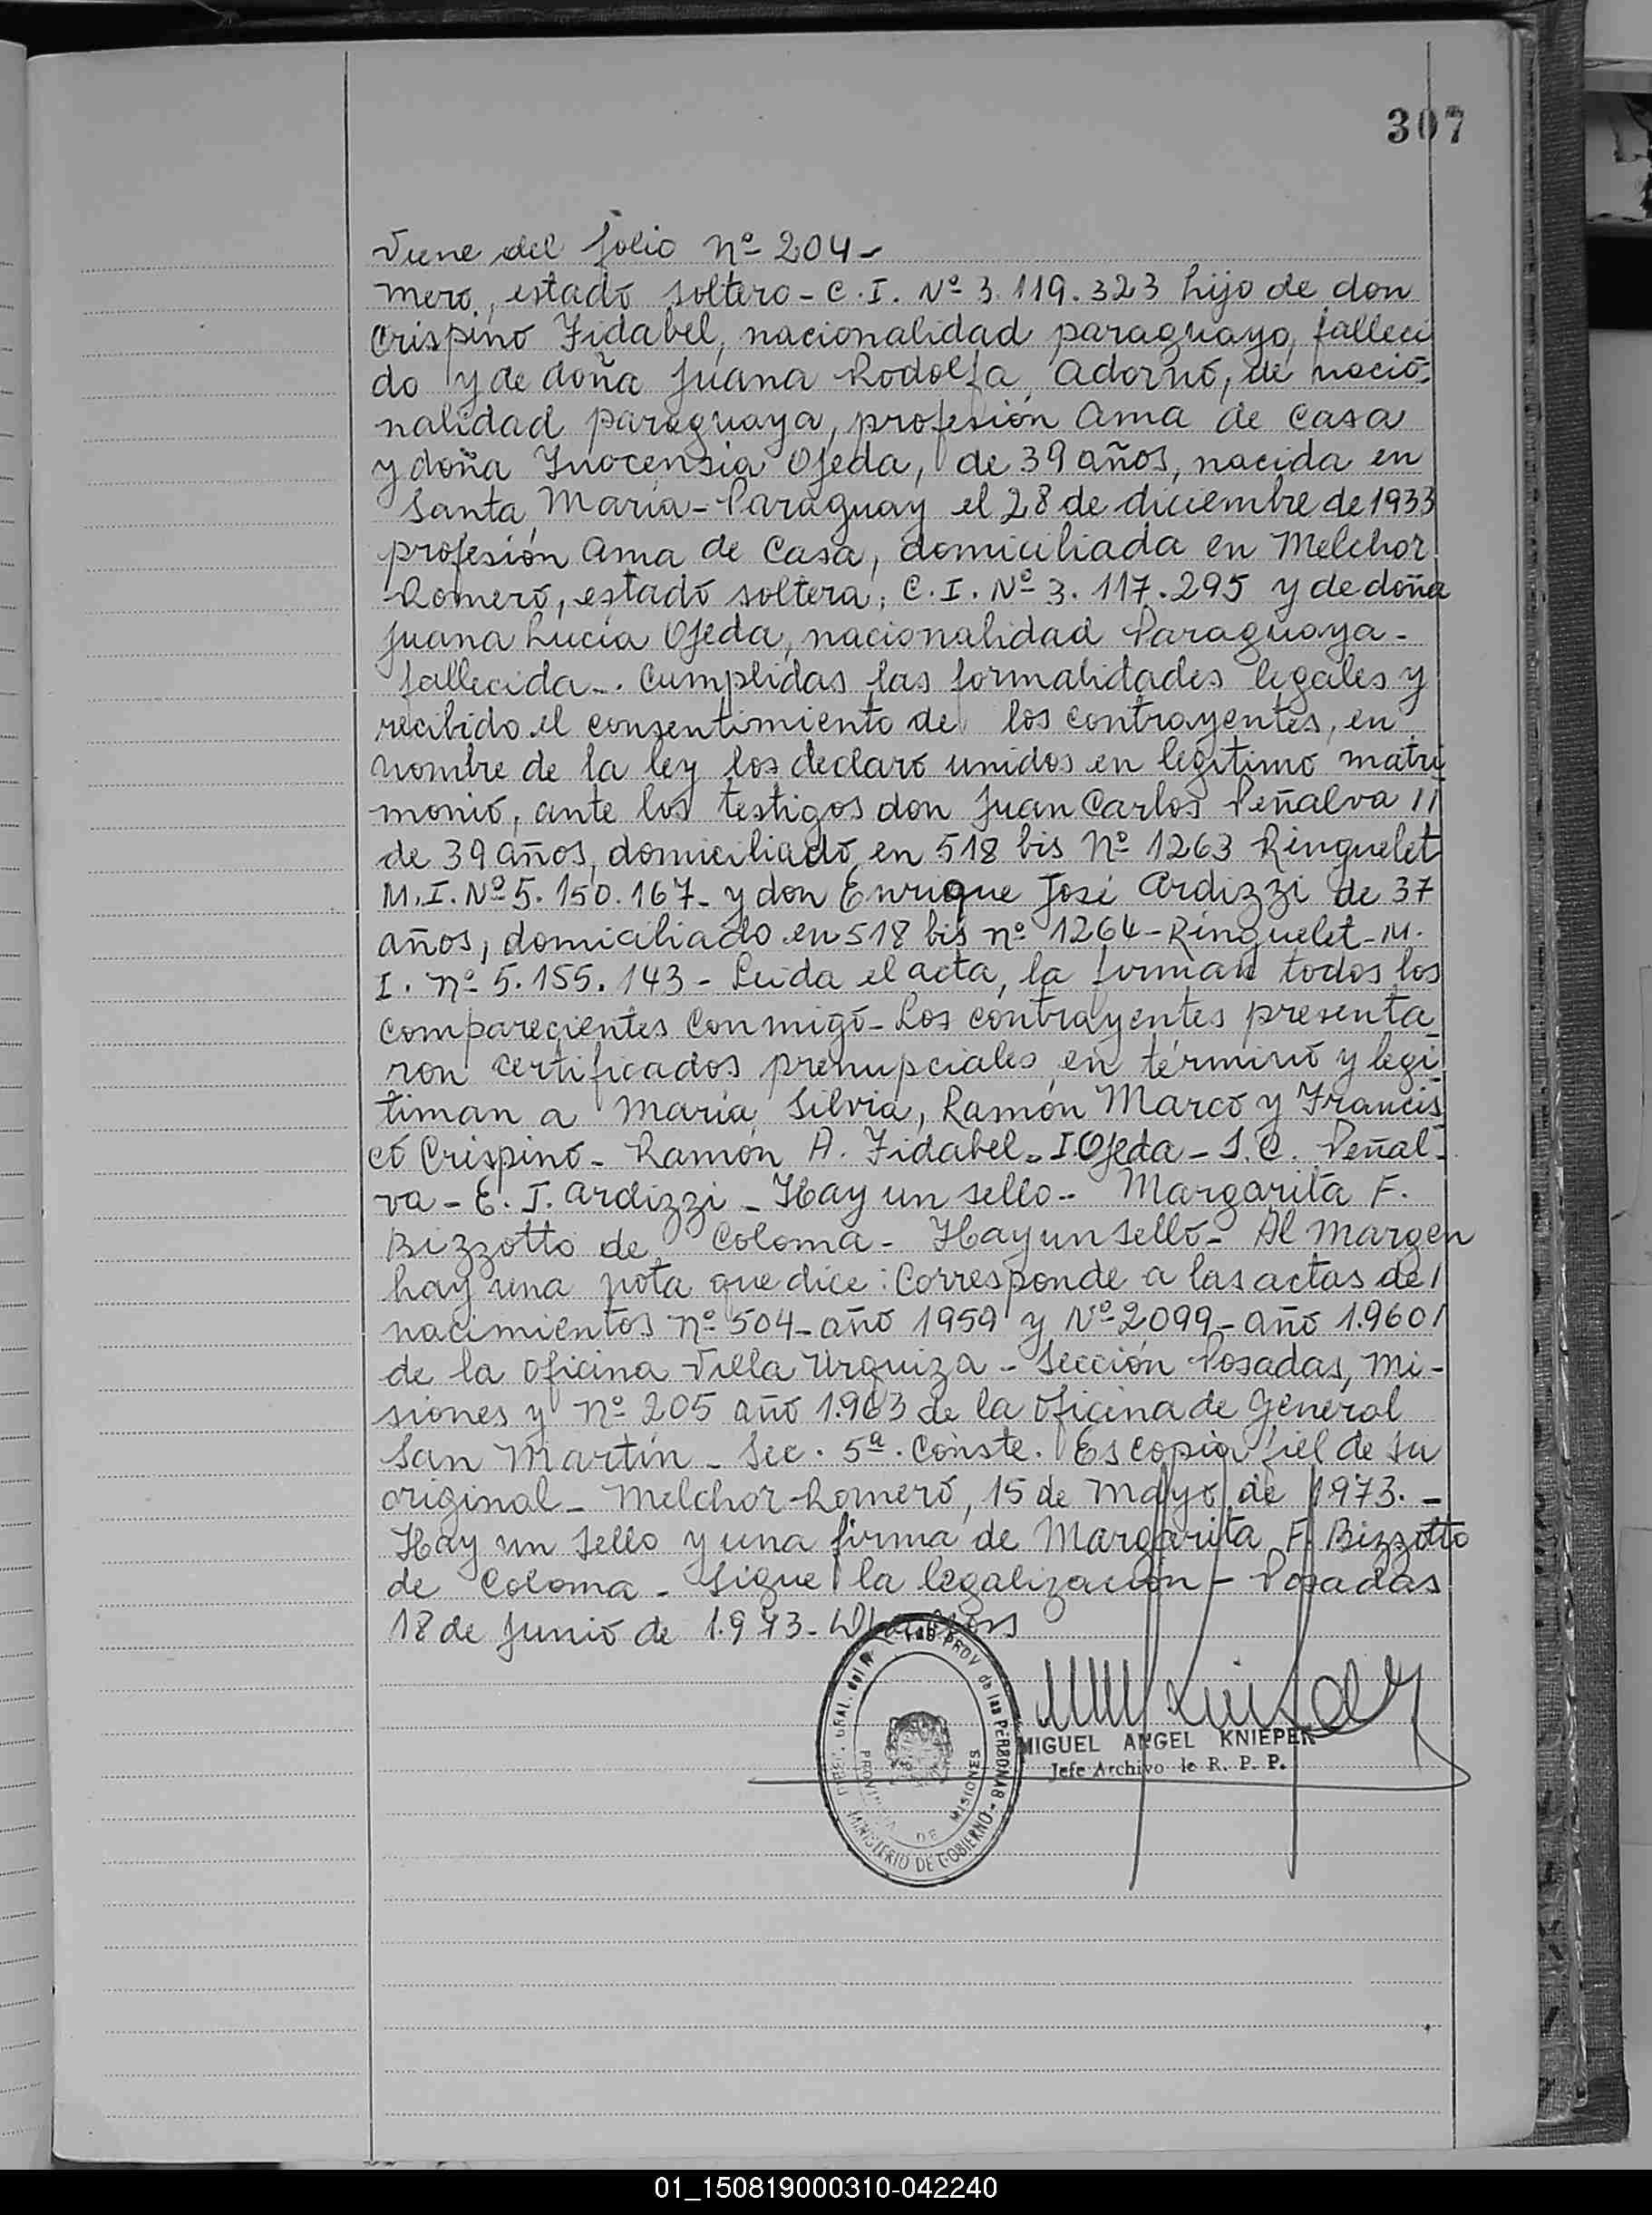 307
Viene del folio Nº 204-
mero, estado soltero - C.I. Nº 3.119.323 hijo de don
Crispino Fidabel, nacionalidad paraguayo, falleci
do y de doña Juana Rodolfa Adorno, de nacio-
nalidad paraguaya, profesión Ama de Casa
y doña Inocensia Ojeda, de 39 años, nacida en
Santa María - Paraguay el 28 de diciembre de 1933
profesión Ama de Casa, domiciliada en Melchor
Romero, estado soltera, C.I. Nº 3.117.295 y de doña
Juana Lucía Ojeda, nacionalidad Paraguaya -
fallecida -. Cumplidas las formalidades legales y
recibido el consentimiento de los contrayentes, en
nombre de la ley los declaro unidos en legítimo matri
monio, ante los testigos don Juan Carlos Peñalva //
de 39 años, domiciliado en 518 bis Nº 1263 Ringuelet
M.I. Nº 5.150.167 - y don Enrique José Ardizzi de 37
años, domiciliado en 518 bis nº 1264 - Ringuelet - M.
I. nº 5.155.143 - Leída el acta, la firman todos los
comparecientes conmigo - Los contrayentes presenta
ron certificados prenupciales en término y legi
timan a María Silvia, Ramón Marco y Francis
co Crispino - Ramón A. Fidabel - I. Ojeda - J.C. Peñal-
va - E. J. Ardizzi - Hay un sello - Margarita F.
Bizzotto de Coloma - Hay un sello - Al margen
hay una nota que dice: Corresponde a las actas de /
nacimientos nº 504 - año 1959 y Nº 2099 - año 1.960 /
de la oficina Villa Urquiza - Sección Posadas, Mi-
siones y nº 205 año 1.963 de la oficina de General
San Martín - Sec. 5ª. Conste. Es copia fiel de su
original - Melchor Romero, 15 de Mayo de 1973. -
Hay un sello y una firma de Margarita F. Bizzotto
de Coloma - Sigue la legalización - Posadas
18 de Junio de 1.973 -
MIGUEL ANGEL KNIEPER
Jefe Archivo de R. P. P.
PROV de las PERSONAS - MINISTERIO DE GOBIERNO
PROVINCIA DE MISIONES
01_150819000310-042240